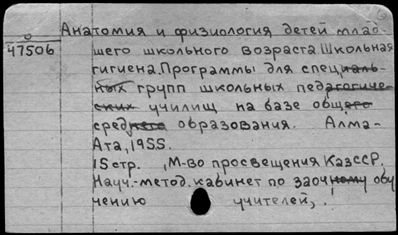 Анатомия и физиология детей млад-
47506 шего школьного возраста. Школьная
гигиена. Программы для специаль-
ных групп школьных педагогиче-
ских училищ на базе общего
среднего образования. Алма-
Ата, 1955.
15 стр. , М-во просвещения КазССР.
Науч.-метод. кабинет по заочному обу
чению учителей, .